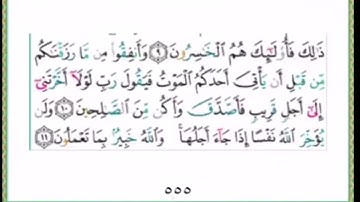 ذَٰلِكَ فَأُو۟لَـٰٓئِكَ هُمُ ٱلْخَـٰسِرُونَ ٩ وَأَنفِقُوا۟ مِن مَّا رَزَقْنَـٰكُم
مِّن قَبْلِ أَن يَأْتِىَ أَحَدَكُمُ ٱلْمَوْتُ فَيَقُولَ رَبِّ لَوْلَآ أَخَّرْتَنِىٓ
إِلَىٰٓ أَجَلٍ قَرِيبٍ فَأَصَّدَّقَ وَأَكُن مِّنَ ٱلصَّـٰلِحِينَ ١٠ وَلَن
يُؤَخِّرَ ٱللَّهُ نَفْسًا إِذَا جَآءَ أَجَلُهَا ۚ وَٱللَّهُ خَبِيرٌۢ بِمَا تَعْمَلُونَ ١١
٥٥٥